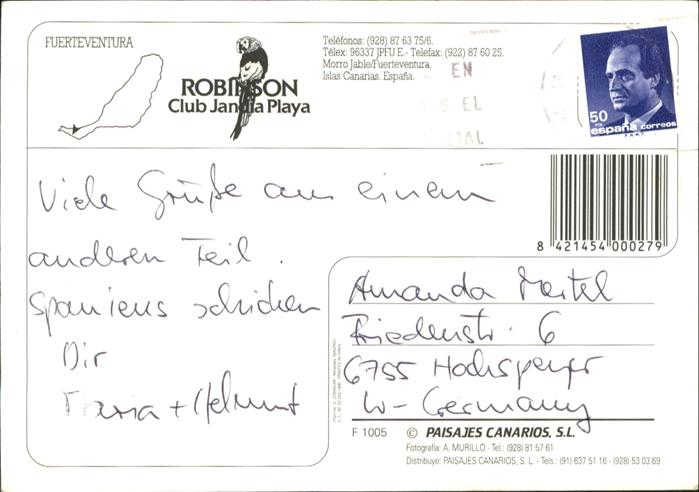 FUERTEVENTURA
ROBINSON
Club Jandia Playa
Teléfonos: (928) 87 63 75/6.
Télex: 96337 JPFU E.- Telefax: (922) 87 60 25.
Morro Jable/Fuerteventura.
Islas Canarias. España.
EN
EL
50
PTA
españa correos
Viele Grüße aus einem
anderen Teil.
Spaniens schicken
Dir
Maria + Helmut
8 421454 000279
Amanda Mertel
Friedenstr. 6
6755 Hochspeyer
W-Germany
F 1005 © PAISAJES CANARIOS, S.L.
Fotografía: A. MURILLO - Tel.: (928) 81 57 61
Distribuye: PAISAJES CANARIOS, S. L. - Tels.: (91) 637 51 16 - (928) 53 03 69